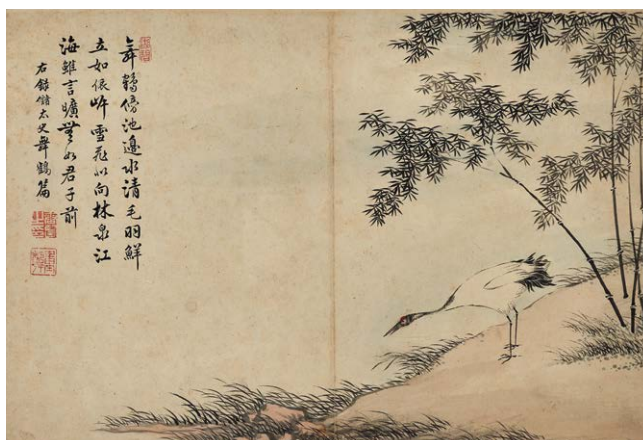 舞鶴傍池邊水清毛羽鮮
立如依岸雪飛似向林泉江
海雖言曠無如君子前
右錄儲太史舞鶴篇